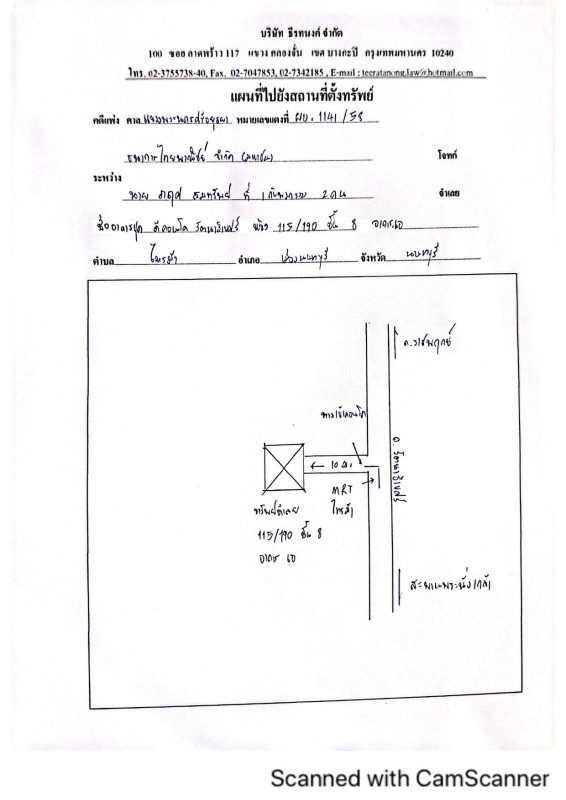 บริษัท ธีรทนงค์ จำกัด
100 ซอย ลาดพร้าว 117 แขวง คลองจั่น เขต บางกะปิ กรุงเทพมหานคร 10240
โทร. 02-3755738-40, Fax. 02-7047853, 02-7342185 , E-mail : teeratanong.law@hotmail.com
แผนที่ไปยังสถานที่ตั้งทรัพย์
คดีแพ่ง ศาล หมายเลขแดงที่ ผบ. 1141 /58
ธนาคารไทยพาณิชย์ จำกัด (มหาชน) โจทก์
ระหว่าง
นาย ที่ 1 จำเลย
ชื่ออาคารชุด ดีคอนโด รัตนาธิเบศร์ ห้อง 115/190 ชั้น 8 อาคารเอ
ตำบล ไทรม้า อำเภอ เมืองนนทบุรี จังหวัด นนทบุรี
ถ.ราชพฤกษ์
ทางเข้าคอนโด
ถ. รัตนาธิเบศร์
← 10 ม.
MRT
ไทรม้า
ทรัพย์จำเลย
115/190 ชั้น 8
อาคาร เอ
สะพานพระนั่งเกล้า
Scanned with CamScanner